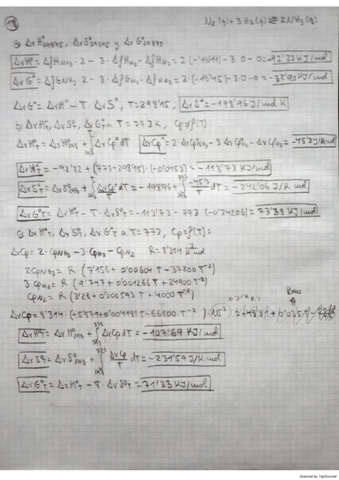 N₂(g) + 3H₂(g) ⇌ 2NH₃(g)
a) ΔrH°298'15, ΔrS°298'15 y ΔrG°298'15
ΔrH° = ΔfHNH₃ · 2 − 3 · ΔfHH₂ − ΔfHN₂ = 2(−46'11) − 3·0 − 0 = −92'22 KJ/mol
ΔrG° = ΔfGNH₃ · 2 − 3 · ΔfGH₂ − ΔfGN₂ = 2(−16'45) − 3·0 − 0 = −32'90 KJ/mol
ΔrG° = ΔrH° − T · ΔrS°, T = 298'15, ΔrS° = −198'96 J/mol K
b) ΔrH°T, ΔrS°T, ΔrG°T a T = 773K, Cp ≠ f(T)
ΔrH°T = ΔrH°298 + ∫ ΔrCp° dT ΔrCp° = 2·ΔrCpNH₃ − 3 ΔrCpH₂ − ΔrCpN₂ = −45'3 J/mol
ΔrH°T = −92'22 + (773−298'15)·(−0'0453) = −113'73 KJ/mol
ΔrS°T = ΔrS°298 + ∫ ΔrCp/T dT = −198'96 + ∫ −45'3/T dT = −242'06 J/K mol
ΔrG°T = ΔrH°T − T · ΔrS°T = −113'73 − 773 (−0'24206) = 73'38 KJ/mol
c) ΔrH°T, ΔrS°T, ΔrG°T a T = 773, Cp = f(T):
ΔrCp = 2·CpNH₃ − 3·CpH₂ − CpN₂ R = 8'314
2CpNH₃ = R · (7'156 + 0'00604 T − 37200 T⁻²)
3CpH₂ = R · (9'747 + 0'001266 T + 24900 T⁻²)
CpN₂ = R · (3'28 + 0'000593 T + 4000 T⁻²)
ΔrCp = 8'314 · (−5'871 + 0'004181 T − 66100 T⁻²)
ΔrH°T = ΔrH°298 + ∫ ΔrCp dT = −107'69 KJ/mol
ΔrS°T = ΔrS°298 + ∫ ΔrCp/T dT = −231'59 J/K mol
ΔrG°T = ΔrH°T − T · ΔrS°T = 71'33 KJ/mol
Scanned by TapScanner